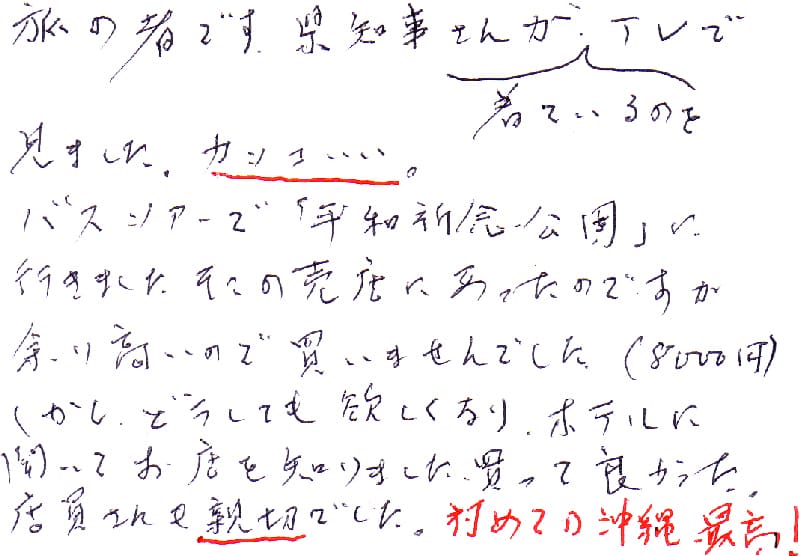 旅の者です。県知事さんが、TVで
着ているのを
見ました。カッコいい。
バスツアーで「平和祈念公園」に
行きました。そこの売店にあったのですが
余り高いので買いませんでした。(8000円)
しかし、どうしても欲しくなり、ホテルに
聞いてお店を知りました。買って良かった。
店員さんも親切でした。初めての沖縄最高!